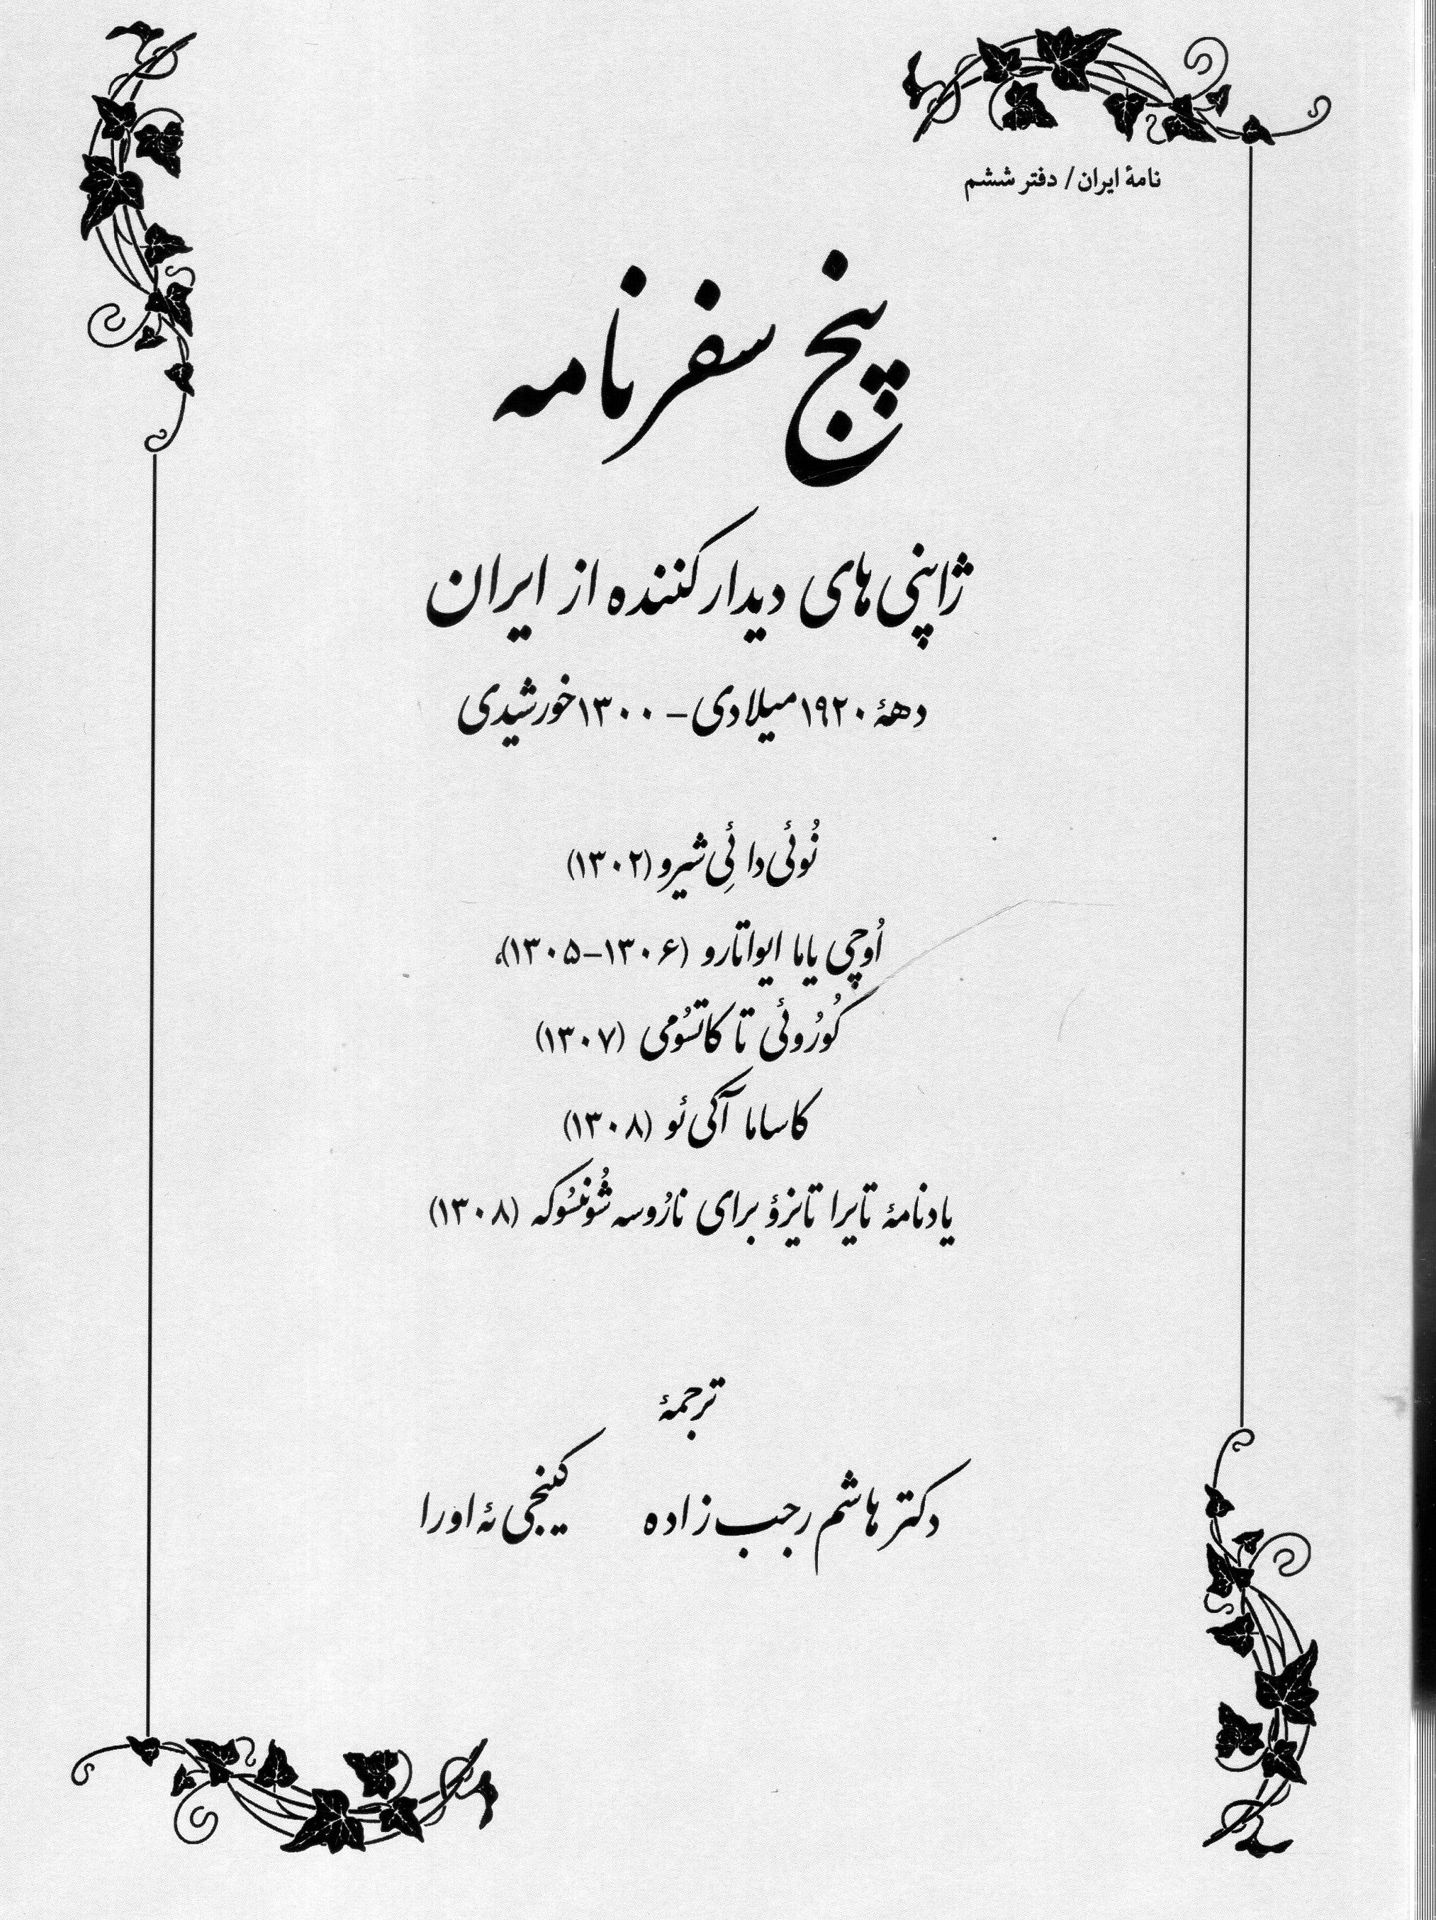 نامهٔ ایران/ دفتر ششم
پنج سفرنامه
ژاپنی‌های دیدارکننده از ایران
دههٔ ۱۹۲۰ میلادی – ۱۳۰۰ خورشیدی
نُوئی دائِی شیرو (۱۳۰۲)
اُوچی یاما ایواتارو (۱۳۰۶–۱۳۰۵)،
کُورُوئی تا کاتسُومی (۱۳۰۷)
کاساما آکی ئو (۱۳۰۸)
یادنامهٔ تایرا تایزؤ برای نارُوسه شُونسُوکه (۱۳۰۸)
ترجمهٔ
دکتر هاشم رجب زاده کینجی ئه اورا